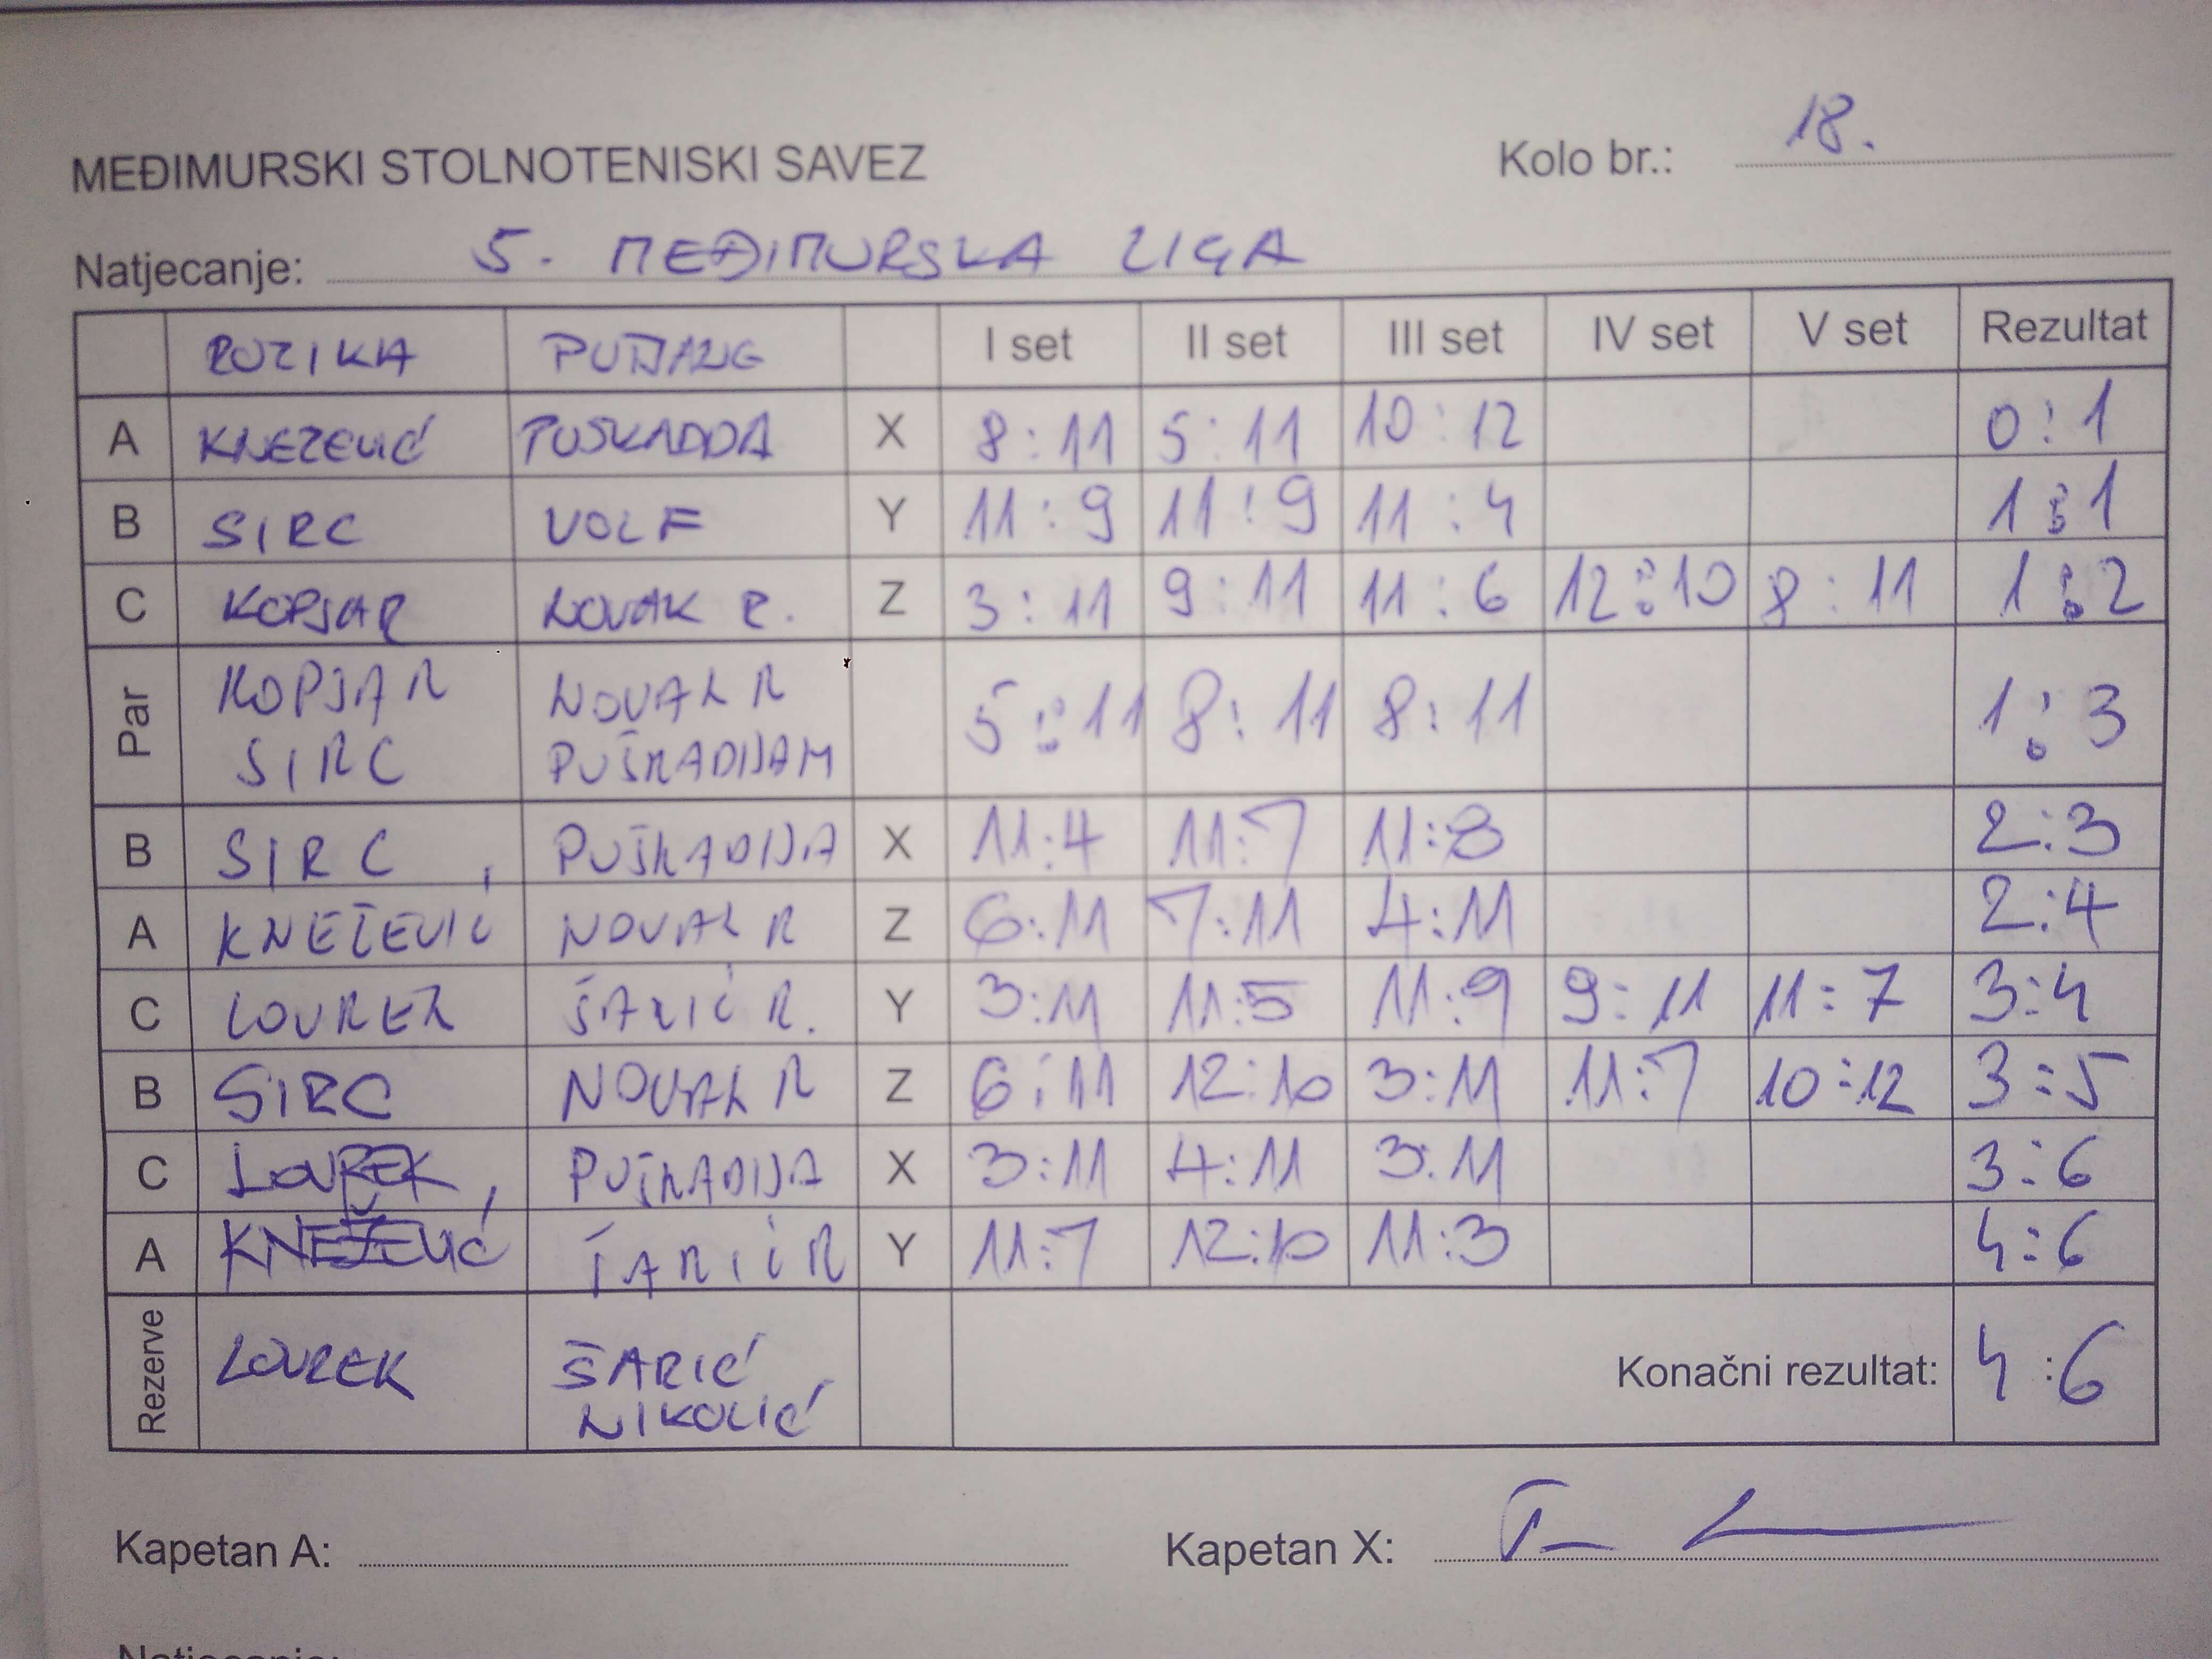 MEĐIMURSKI STOLNOTENISKI SAVEZ Kolo br.: 18.
Natjecanje: 5. MEĐIMURSKA LIGA
I set II set III set IV set V set Rezultat
A KNEZEVIĆ X 8:11 5:11 10:12 0:1
B SIRC VOLF Y 11:9 11:9 11:4 1:1
C KOPJAR NOVAK R. Z 3:11 9:11 11:6 12:10 8:11 1:2
Par KOPJAR NOVAK R 5:11 8:11 8:11 1:3
SIRC
B SIRC PUŠKADIJA X 11:4 11:7 11:8 2:3
A KNEŽEVIĆ NOVAK R Z 6:11 7:11 4:11 2:4
C LOVREK ŠARIĆ R. Y 3:11 11:5 11:9 9:11 11:7 3:4
B SIRC NOVAK R Z 6:11 12:10 3:11 11:7 10:12 3:5
C LOVREK, PUŠKADIJA X 3:11 4:11 3:11 3:6
A KNEŽEVIĆ ŠARIĆ R Y 11:7 12:10 11:3 4:6
Rezerve LOVREK ŠARIĆ Konačni rezultat: 4:6
NIKOLIĆ
Kapetan A: Kapetan X: